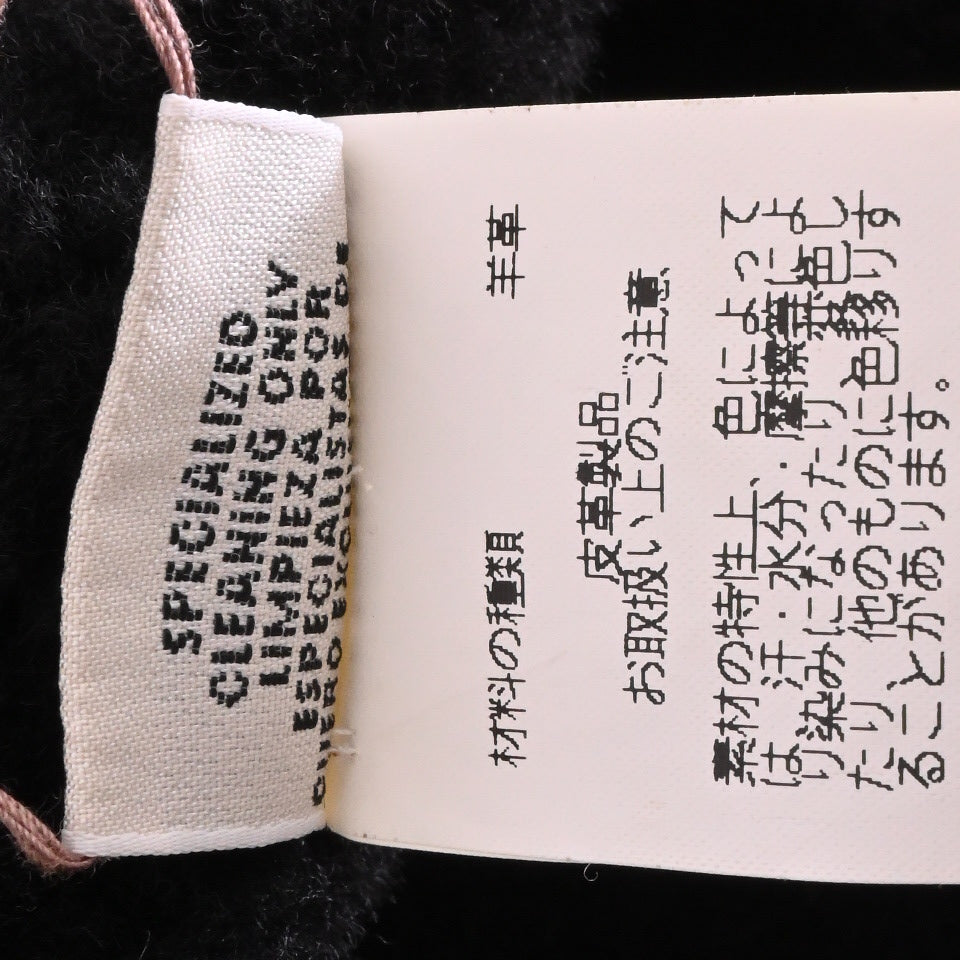 SPECIALIZED
CLEANING ONLY
LIMPIEZA POR
ESPECIALISTAS DE
CUERO
材料の種類 羊革
皮革製品
お取扱い上のご注意
素材の特性上、色によって
は汗・水分・摩擦等によ
り染みになったり、褪色し
たり、他のものに色移りす
ることがあります。